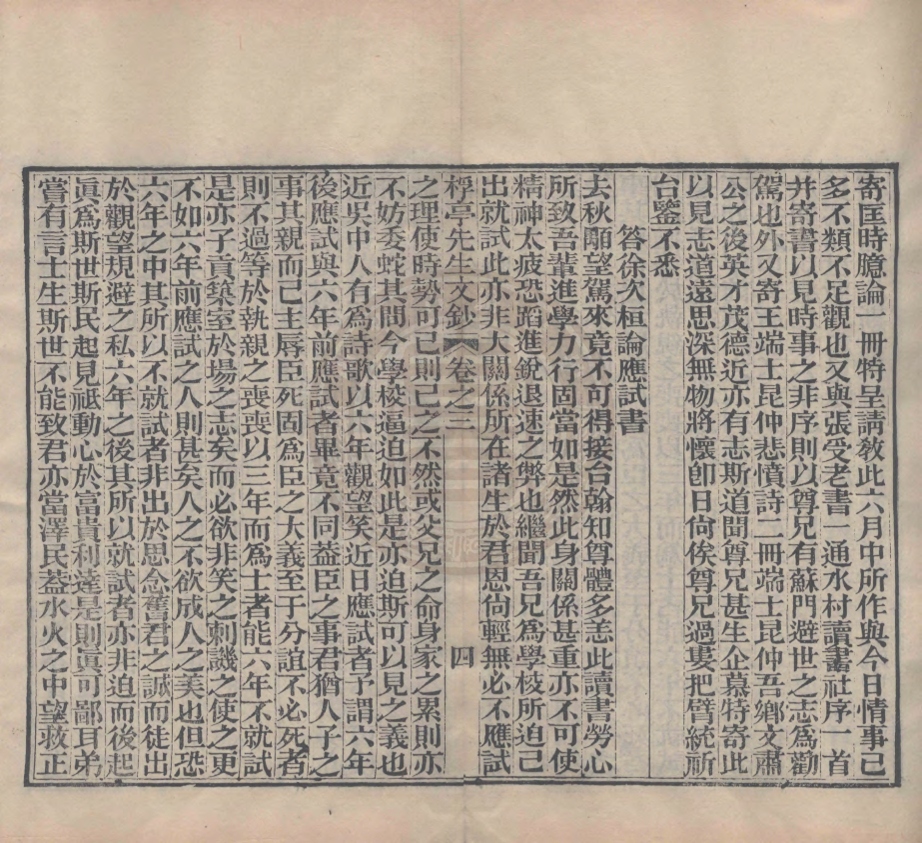 寄匡時臆論一冊特呈請教此六月中所作與今日情事已
多不類不足觀也又與張受老書一通水村讀書社序一首
并寄書以見時事之非序則以尊兄有蘇門避世之志爲勸
駕也外又寄王端士昆仲悲憤詩二冊端士昆仲吾鄉文肅
公之後英才茂德近亦有志斯道聞尊兄甚生企慕特寄此
以見志道遠思深無物將懷卽日尙俟尊兄過婁把臂統祈
台鑒不悉
答徐次桓論應試書
去秋顒望駕來竟不可得接台翰知尊體多恙此讀書勞心
所致吾輩進學力行固當如是然此身關係甚重亦不可使
精神太疲恐蹈進銳退速之弊也繼聞吾兄爲學校所迫已
出就試此亦非大關係所在諸生於君恩尙輕無必不應試
桴亭先生文鈔 卷之三 四
之理使時勢可已則已之不然或父兄之命身家之累則亦
不妨委蛇其間今學校逼迫如此是亦迫斯可以見之義也
近吳中人有爲詩歌以六年觀望笑近日應試者予謂六年
後應試與六年前應試者畢竟不同蓋臣之事君猶人子之
事其親而已主辱臣死固爲臣之大義至于分誼不必死者
則不過等於執親之喪喪以三年而爲士者能六年不就試
是亦子貢築室於場之志矣而必欲非笑之刺譏之使之更
不如六年前應試之人則甚矣人之不欲成人之美也但恐
六年之中其所以不就試者非出於思念舊君之誠而徒出
於觀望規避之私六年之後其所以就試者亦非迫而後起
眞爲斯世斯民起見祗動心於富貴利達是則眞可鄙耳弟
嘗有言士生斯世不能致君亦當澤民蓋水火之中望救正